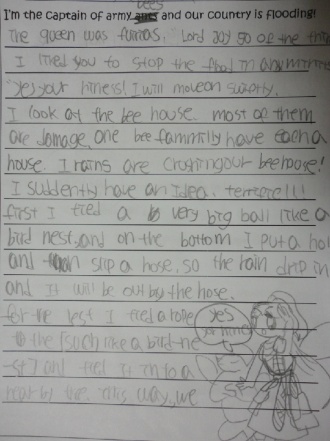 bees
I'm the captain of army ants and our country is flooding!
The queen was furious. "Lord Joy go of the
I need you to stop the flood in any
"yes your hiness! I will move on swiftly.
I look at the bee house. most of them
are damage, one bee fammilly have each a
house. I rains are crushing our beehouse!
I suddently have an Idea. terrere!!!
first I tied a very big ball like a
bird nest, and on the bottom I put a hol
and slip a hose, so the rain drip in
and It will be out by the hose.
for the rest I tied a
the [such like a bird ne
-st] and tied it into a
near by the this way, we
yes
your hiness